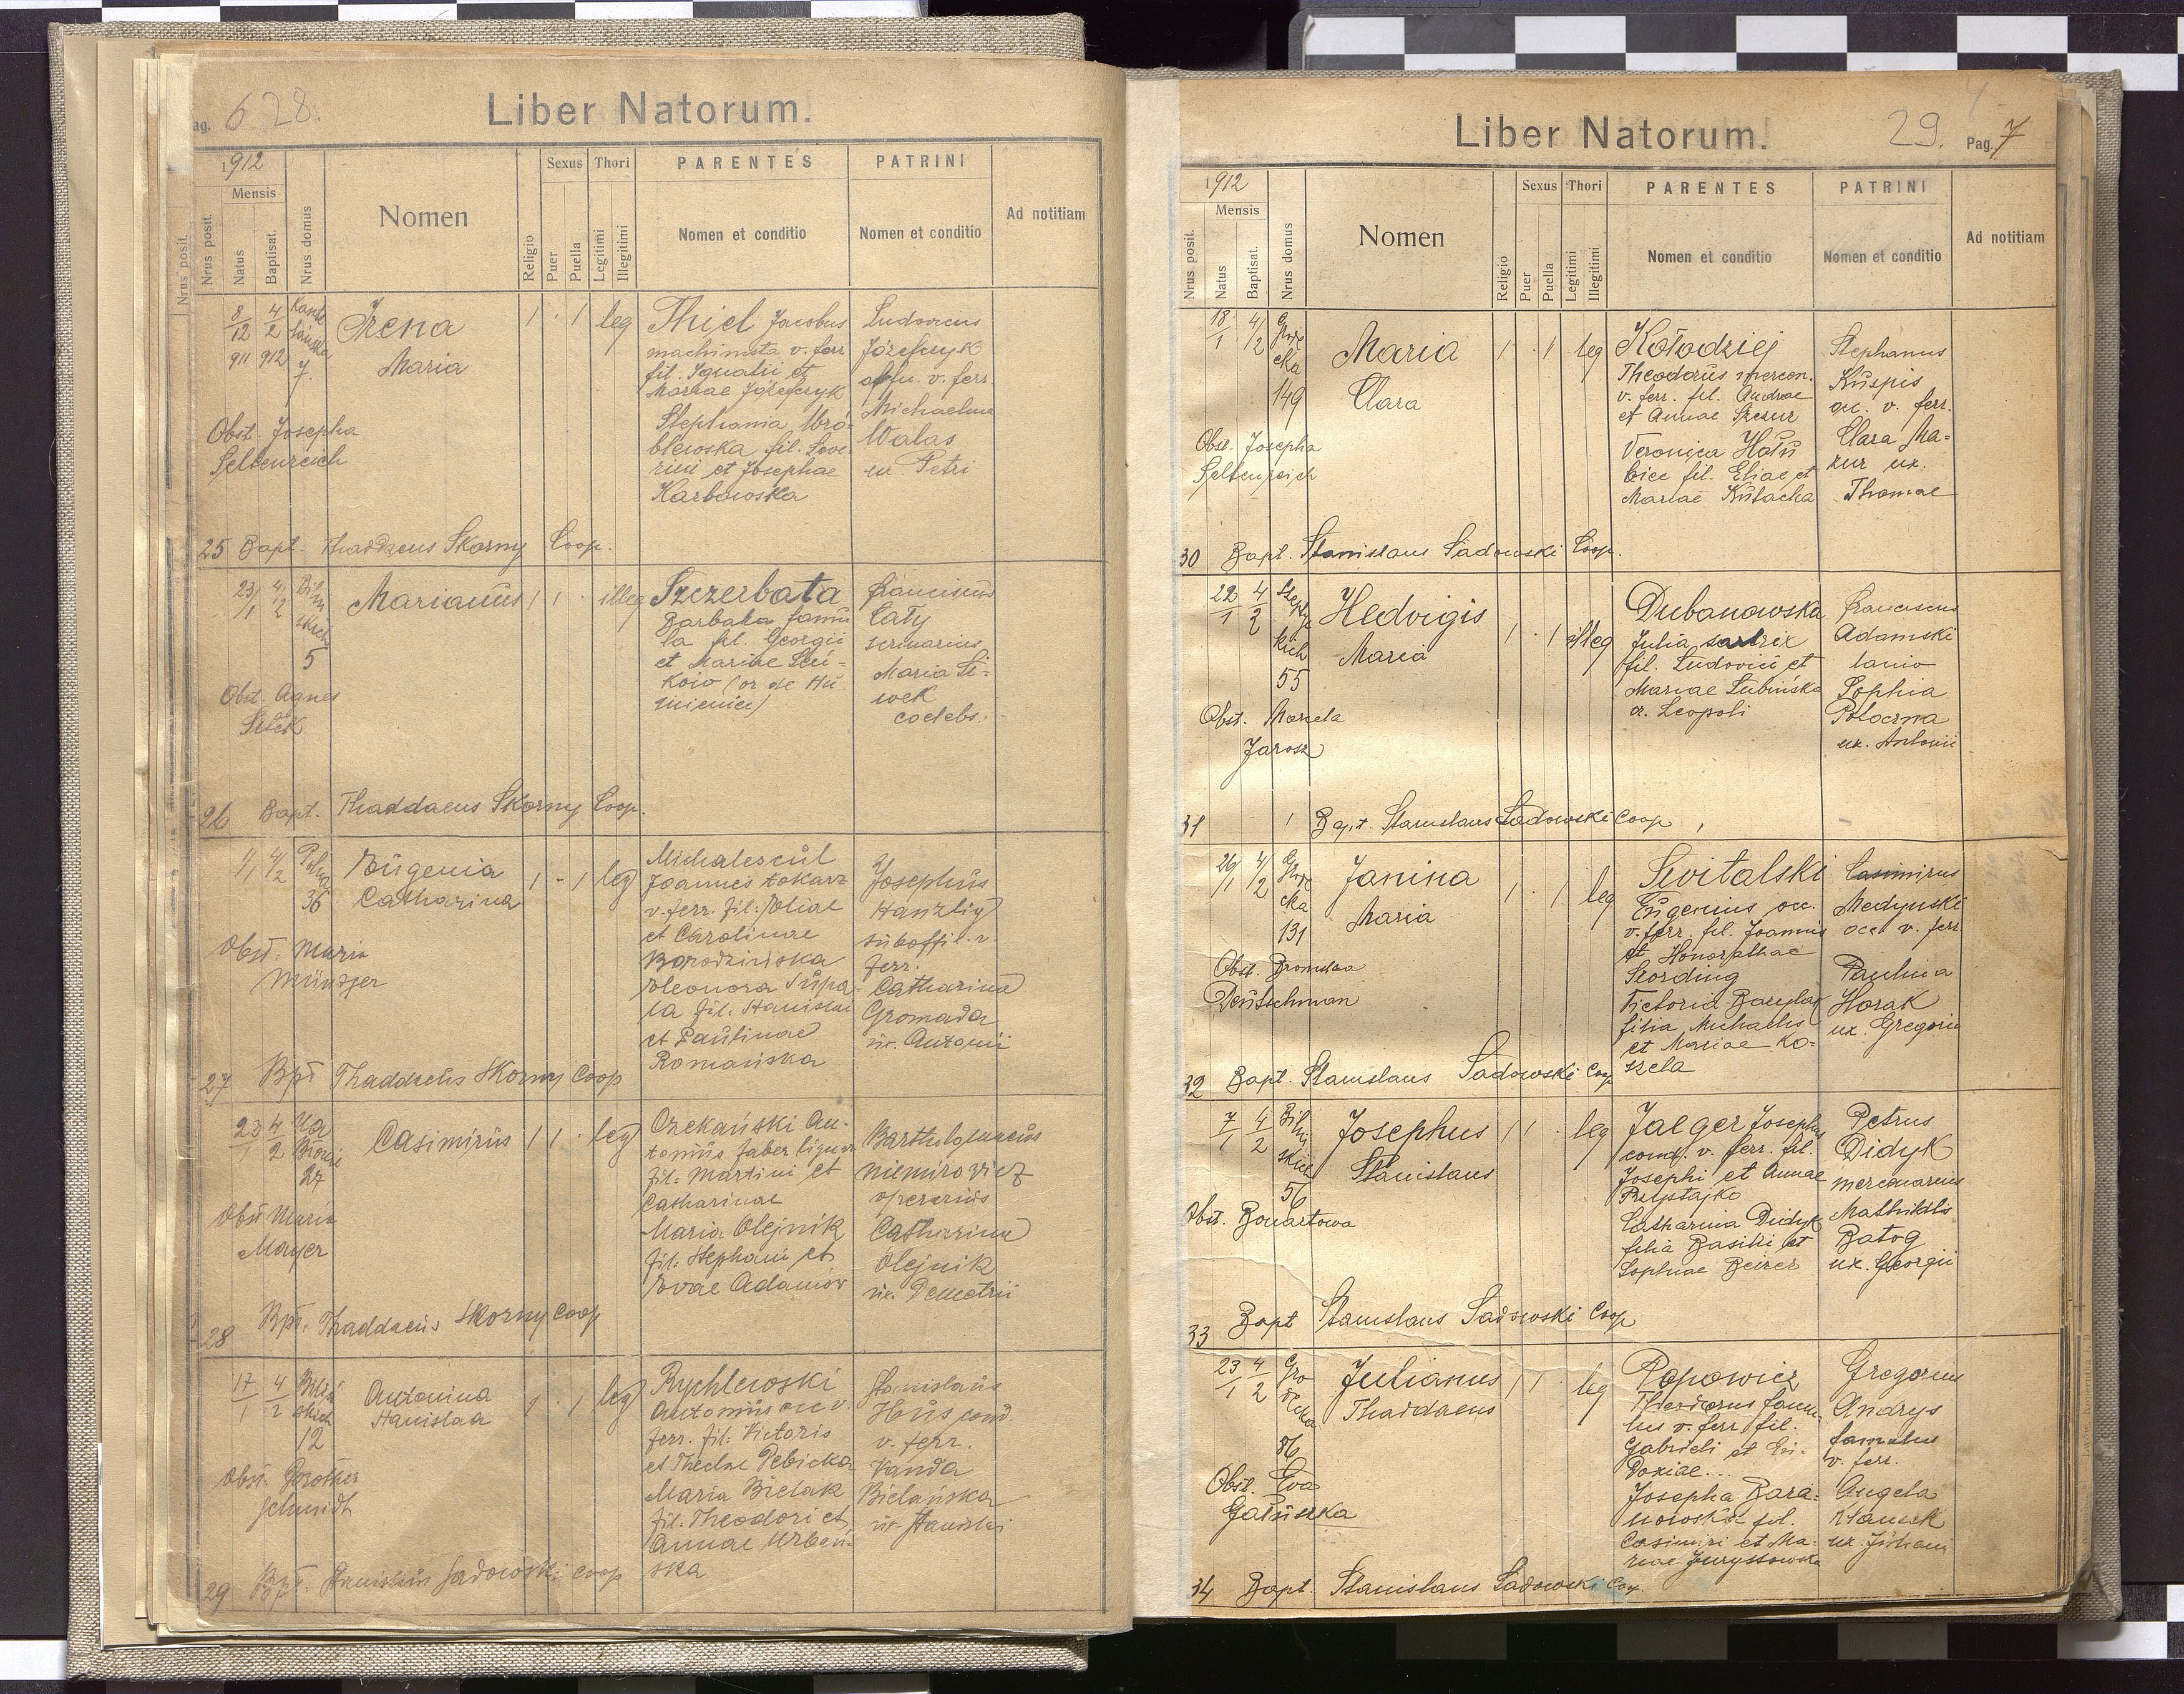 Pag. 6 28.
Liber Natorum.
1912
Mensis
Nrus posit.
Nrus posit.
Natus
Baptisat.
Nrus domus
Nomen
Religio
Sexus
Puer
Puella
Thori
Legitimi
Illegitimi
PARENTES
Nomen et conditio
PATRINI
Nomen et conditio
Ad notitiam
8/12 911
4/2 912
7
Irena
Maria
1 · 1 leg
Thiel Jacobus
machinista v. ferr
fil. Ignatii et
Mariae Józefczyk
Stephania Wró-
blewska fil. Seve-
rini et Josephae
Karbowska
Ludovicus
Józefczyk
offu. v. ferr.
Michaelina
Walas
ux. Petri
Obst. Josepha
Seltenreich
25 Bapt. Thaddaeus Skorny Coop.
23/1
4/2
5
Marianus
1 1 · illeg
Szczerbata
Barbara famu
la fil. Georgii
et Mariae
Franciscus
Caty
Maria Si-
wek
coelebs.
Obst. Agnes
26 Bapt. Thaddaeus Skorny Coop.
4/2
36
Eugenia
Catharina
1 - 1 leg
Michalescul
Joannes tokarz
v. ferr. fil: Eliae
et Carolinae
Borodzińska
Eleonora Supa-
la fil. Stanislai
et Paulinae
Romańska
Josephus
Hanzlig
suboffil. v.
ferr.
Catharina
Gromada
ux. Antonii
Obst. Maria
Münzger
27 Bpt Thaddaeus Skorny Coop
23/1
4/2
Na
27
Casimirus
1 1 · leg
Ożekański An-
tonius faber lignar
fil: Martini et
Catharinae
Maria Olejnik
fil: Stephani et
Evae Adamów
Bartholomaeus
Niemirowicz
operarius
Catharina
Olejnik
ux. Demetrii
Obst Maria
Mayer
28 Bpt. Thaddaeus Skorny Coop
17/1
4/2
12
Antonina
Stanislaa
1 · 1 leg
Rychlewski
Antonius occ v.
ferr. fil: Victoris
et Theclae Debicka
Maria Bielak
fil: Theodori et
Annae Urbań-
ska
Stanislaus
Hus cond.
v. ferr.
Vanda
Bielańska
ux. Stanislai
Obst. Dorothea
Schmidt
29 Bpt. Stanislaus Sadowski coop
Liber Natorum.
29. Pag. 7
1912
Mensis
Nrus posit.
Natus
Baptisat.
Nrus domus
Nomen
Religio
Sexus
Puer
Puella
Thori
Legitimi
Illegitimi
PARENTES
Nomen et conditio
PATRINI
Nomen et conditio
Ad notitiam
18/1
4/2
149
Maria
Clara
1 · 1 leg
Kołodziej
Theodorus mercen.
v. ferr. fil. Andreae
et Annae Szczur
Veronica
fil. Eliae et
Mariae Kułacha
Stephanus
Kuspis
v. ferr.
Clara Ma-
zur ux.
Thomae
Obst. Josepha
Seltenreich
30 Bapt. Stanislaus Sadowski Coop.
22/1
4/2
55
Hedvigis
Maria
1 · 1 illeg
Dubanowska
Julia sartrix
fil. Ludovici et
Mariae Łubińska
or. Leopoli
Franciscus
Adamski
lanio
Sophia
Potoczna
ux. Antonii
Obst. Marcela
Jarosz
31 Bapt. Stanislaus Sadowski Coop
26/1
4/2
131
Janina
Maria
1 · 1 leg
Switalski
Eugenius occ.
v. ferr. fil. Joannis
et Honorathae
Sording
Victoria Baryłak
filia Michaelis
et Mariae Ko-
szela
Casimirus
Medyński
occ v. ferr
Paulina
Horak
ux. Gregorii
Obst. Bronislaa
Deutschman
32 Bapt. Stanislaus Sadowski Coop
7/1
4/2
56
Josephus
Stanislaus
1 1 · leg
Jaeger Josephus
cond. v. ferr. fil.
Josephi et Annae
Przystajko
Catharina Didyk
filia Basilii et
Sophiae Beizer
Petrus
Didyk
mercenarius
Mathildis
Batog
ux. Georgii
Obst. Bonartowa
33 Bapt Stanislaus Sadowski Coop
23/1
4/2
Gro
decka
86
Julianus
Thaddaeus
1 1 · leg
Popowicz
Theodorus famu-
lus v. ferr. fil.
Gabrieli et Eu-
doxiae...
Josepha Bara-
nowska fil.
Casimiri et Ma-
riae Juryssowska
Gregorius
Andrys
famulus
v. ferr.
Angela
ux. Juliani
Obst. Eva
Gałuszka
34 Bapt. Stanislaus Sadowski Coop.